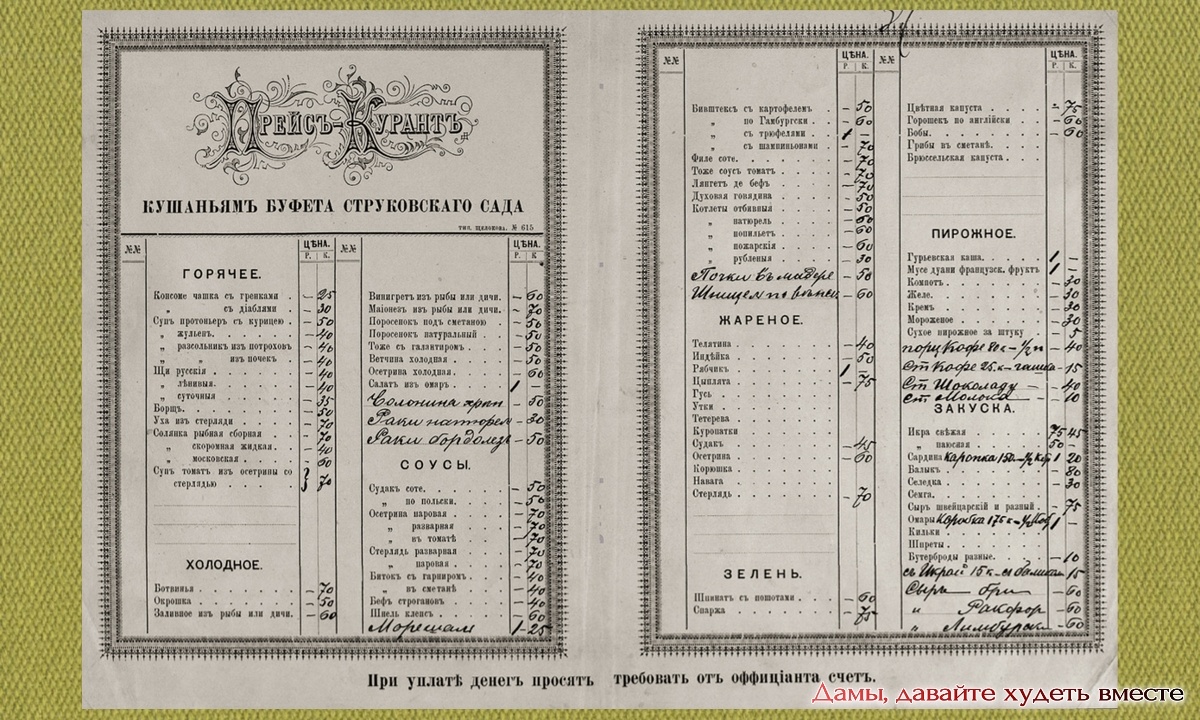 Прейсъ-Курантъ
КУШАНЬЯМЪ БУФЕТА СТРУКОВСКАГО САДА
тип. Щелокова. № 615
№№ ЦѢНА. Р. К.
ГОРЯЧЕЕ.
Консоме чашка съ гренками . — 25
„ съ діаблями . — 30
Супъ протоньеръ съ курицею . — 50
„ жульенъ. — 40
„ разсольникъ изъ потроховъ — 40
„ „ изъ почекъ . — 40
Щи русскія . — 40
„ лѣнивыя. — 40
„ суточныя . — 35
Борщъ. — 50
Уха изъ стерляди . — 70
Солянка рыбная сборная . — 70
„ скоромная жидкая. — 40
„ московская . — 60
Супъ томатъ изъ осетрины со
стерлядью . 70
ХОЛОДНОЕ.
Ботвинья . — 70
Окрошка . — 50
Заливное изъ рыбы или дичи. — 60
№№ ЦѢНА. Р. К.
Винигретъ изъ рыбы или дичи. — 60
Маіонезъ изъ рыбы или дичи. — 70
Поросенокъ подъ сметаною . — 50
Поросенокъ натуральный . — 50
Тоже съ галантиромъ . — 50
Ветчина холодная . — 50
Осетрина холодная . — 60
Салатъ изъ омаръ . 1 —
Солонина хрѣн — 50
Раки натюрель — 30
Раки бордолезъ — 50
СОУСЫ.
Судакъ соте . — 50
„ по польски. — 50
Осетрина паровая . — 70
„ разварная — 70
„ въ томатѣ — 70
Стерлядь разварная . — 70
„ паровая . — 70
Битокъ съ гарниромъ . — 40
„ въ сметанѣ — 40
Бефъ строгановъ . — 40
Шнель клепсъ . — 60
1-25
№№ ЦѢНА. Р. К.
Бивштексъ съ картофелемъ . — 50
„ по Гамбургски . — 60
„ съ трюфелями . 1 —
„ съ шампиньонами . — 70
Филе соте. — 70
Тоже соусъ томатъ . — 70
Лянгетъ де бефъ . — 70
Духовая говядина . — 50
Котлеты отбивныя . — 50
„ натюрель . — 60
„ попильетъ . — 60
„ пожарскія . — 60
„ рубленыя . — 30
Почки въ мадере — 50
Шницель по венск. — 60
ЖАРЕНОЕ.
Телятина . — 40
Индѣйка . — 50
Рябчикъ . 1 —
Цыплята . — 75
Гусь .
Утки .
Тетерева .
Куропатки .
Судакъ . — 45
Осетрина . — 60
Корюшка .
Навага .
Стерлядь . — 70
ЗЕЛЕНЬ.
Шпинатъ съ пошотами . — 60
Спаржа . — 75
№№ ЦѢНА. Р. К.
Цвѣтная капуста . — 75
Горошекъ по англійски . — 60
Бобы. — 60
Грибы въ сметанѣ.
Брюссельская капуста .
ПИРОЖНОЕ.
Гурьевская каша. 1 —
Мусе дуани французск. фруктъ 1 —
Компотъ . — 30
Желе. — 30
Кремъ . — 30
Мороженое . — 30
Сухое пирожное за штуку — 5
порц Кофе 80к — ½ п — 40
Ст Кофе 25к — чашка — 15
Ст Шоколаду — 40
Ст Молока — 10
ЗАКУСКА.
Икра свѣжая . 75 45
„ паюсная . 50 —
Сардина Коропка 150 — ½ Кор 1 20
Балыкъ . — 80
Селедка . — 30
Семга.
Сыръ швейцарскій и разный . — 75
Омары Коробка 175к — ½ Коб 1 —
Кильки .
Шпреты .
Бутерброды разные. — 10
съ Икрой 15к — 15
Сыръ бри — 60
„ Ракфор — 60
„ Лимбурск — 60
При уплатѣ денегъ просятъ требовать отъ оффиціанта счетъ.
Дамы, давайте худеть вместе